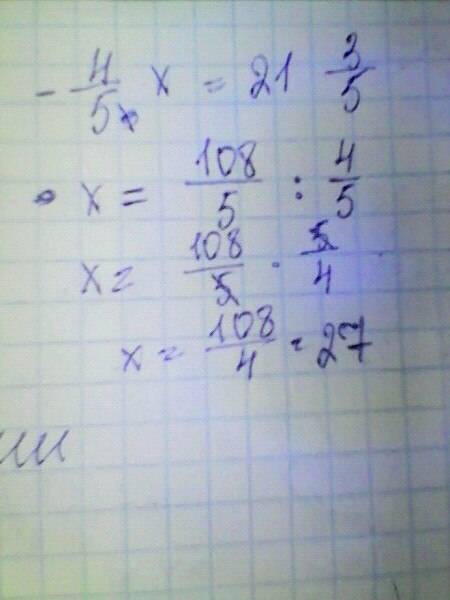 - 4/5 x = 21 3/5
x = 108/5 : 4/5
x = 108/5 · 5/4
x = 108/4 = 27